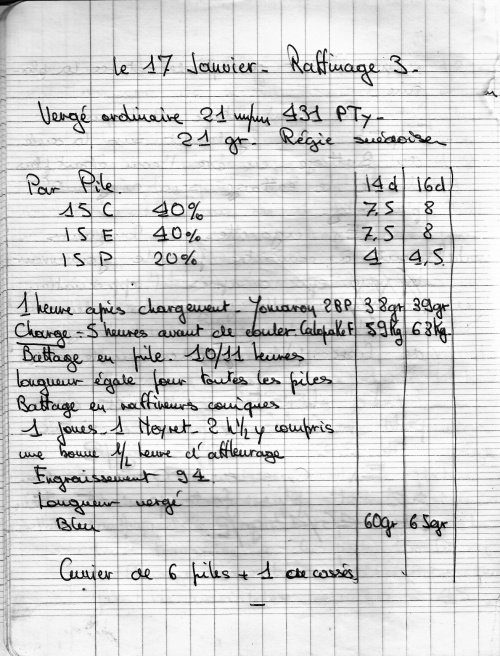 le 17 Janvier - Raffinage 3.
Vergé ordinaire 21 431 PTy -
21 gr. Régie suédoise
Par Pile. 14d 16d
15 C 40% 7,5 8
15 E 40% 7,5 8
15 P 20% 4 4,5
1 heure après chargement - 2BP 38gr 39gr
Charge = 5 heures avant de couler. F 59kg 63kg
Battage en pile. 10/11 heures
Longueur égale pour toutes les piles
Battage en raffineurs coniques
1 Jones - 1 Neyret - 2 h 1/2 y compris
une bonne 1/2 heure d'affleurage
Engraissement 94.
Longueur vergé
Bleu 60gr 65gr
Cuvier de 6 piles + 1 de cassés.